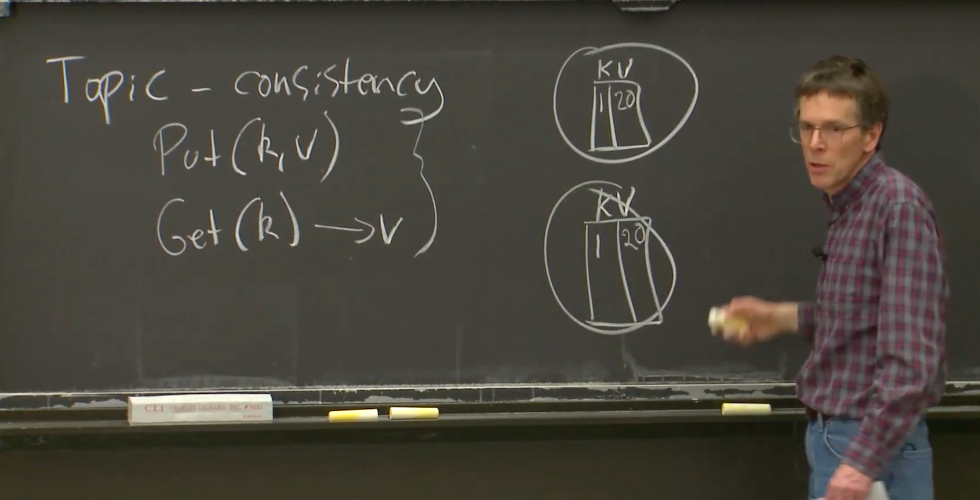 Topic - consistency
Put(k,v)
Get(k) → v
K V
1 20
K V
1 20
CLI